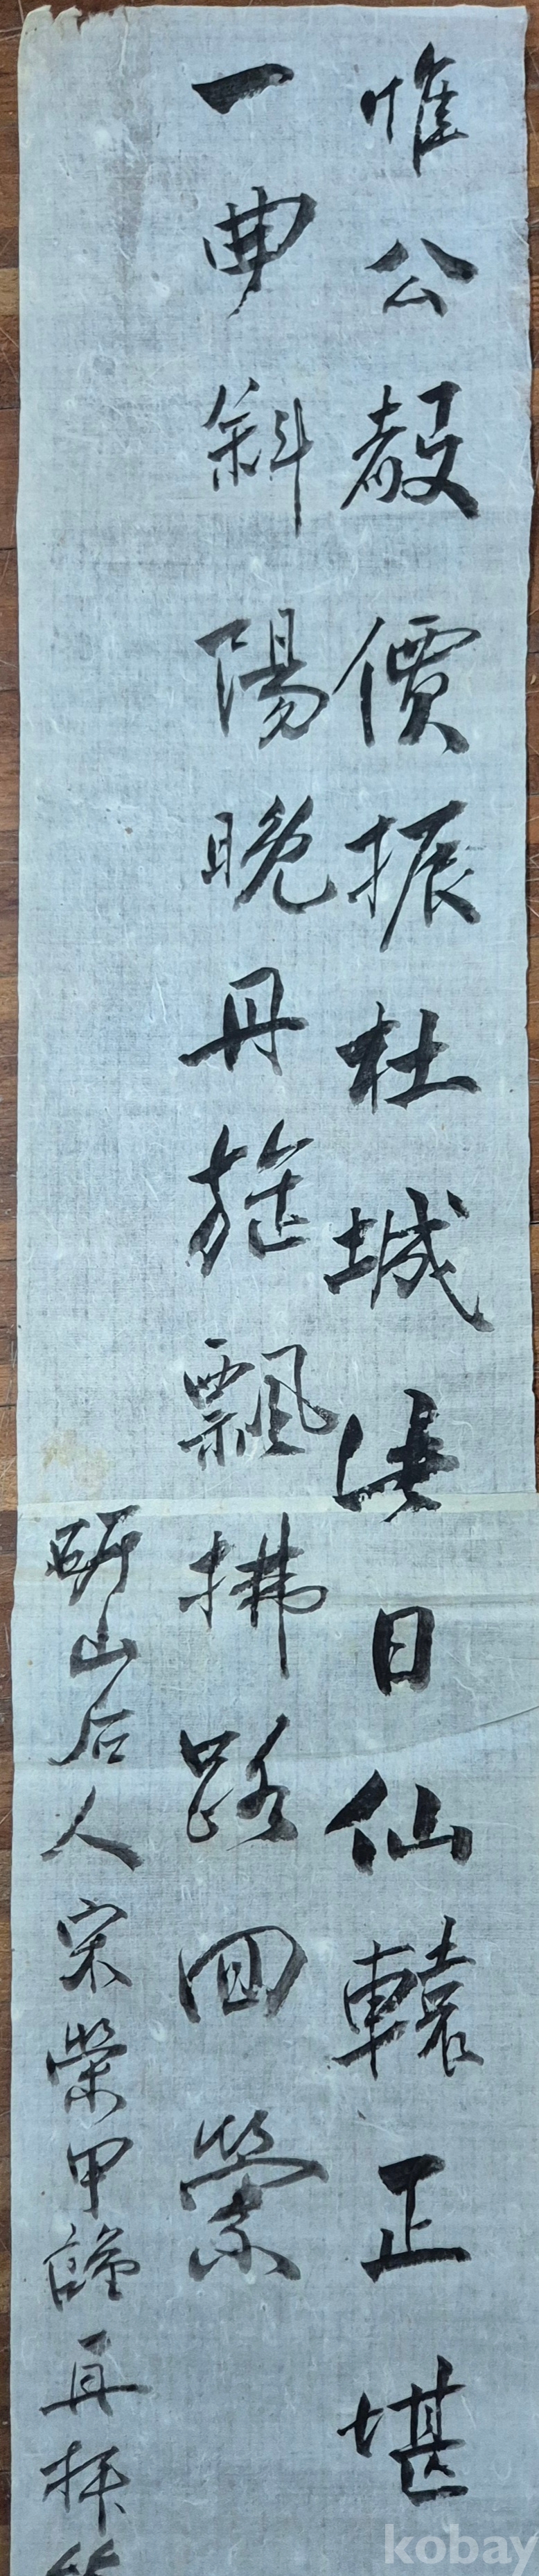 惟公聲價振杜城此日仙轅正堪
一曲斜陽晚丹旌飄拂路回縈
研山后人宋榮甲謹再拜
kobay